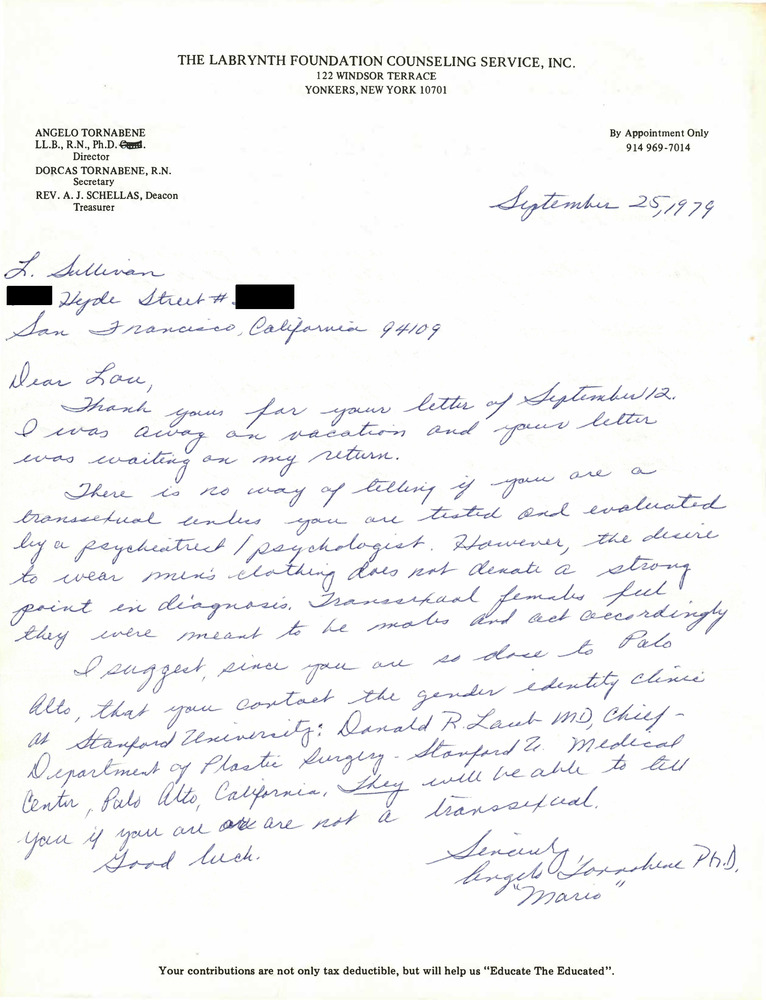 THE LABRYNTH FOUNDATION COUNSELING SERVICE, INC.
122 WINDSOR TERRACE
YONKERS, NEW YORK 10701
ANGELO TORNABENE
LL.B., R.N., Ph.D. Cand.
Director
DORCAS TORNABENE, R.N.
Secretary
REV. A. J. SCHELLAS, Deacon
Treasurer
By Appointment Only
914 969-7014
September 25, 1979
L. Sullivan
Hyde Street #
San Francisco, California 94109
Dear Lou,
Thank your for your letter of September 12.
I was away on vacation and your letter
was waiting on my return.
There is no way of telling if you are a
transsexual unless you are tested and evaluated
by a psychiatrist / psychologist. However, the desire
to wear men's clothing does not denote a strong
point in diagnosis. Transsexual females feel
they were meant to be males and act accordingly
I suggest, since you are so close to Palo
Alto, that you contact the gender identity clinic
at Stanford University: Donald R. Laub MD, Chief -
Department of Plastic Surgery - Stanford U. Medical
Center, Palo Alto, California. They will be able to tell
you if you are or are not a transsexual.
Good luck.
Sincerely,
Angelo Tornabene Ph.D.
"Mario"
Your contributions are not only tax deductible, but will help us "Educate The Educated".